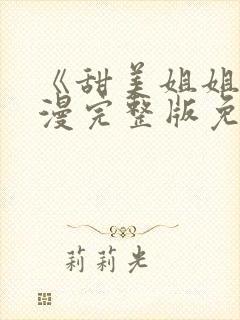 《甜美姐姐
漫完整版免
莉莉光